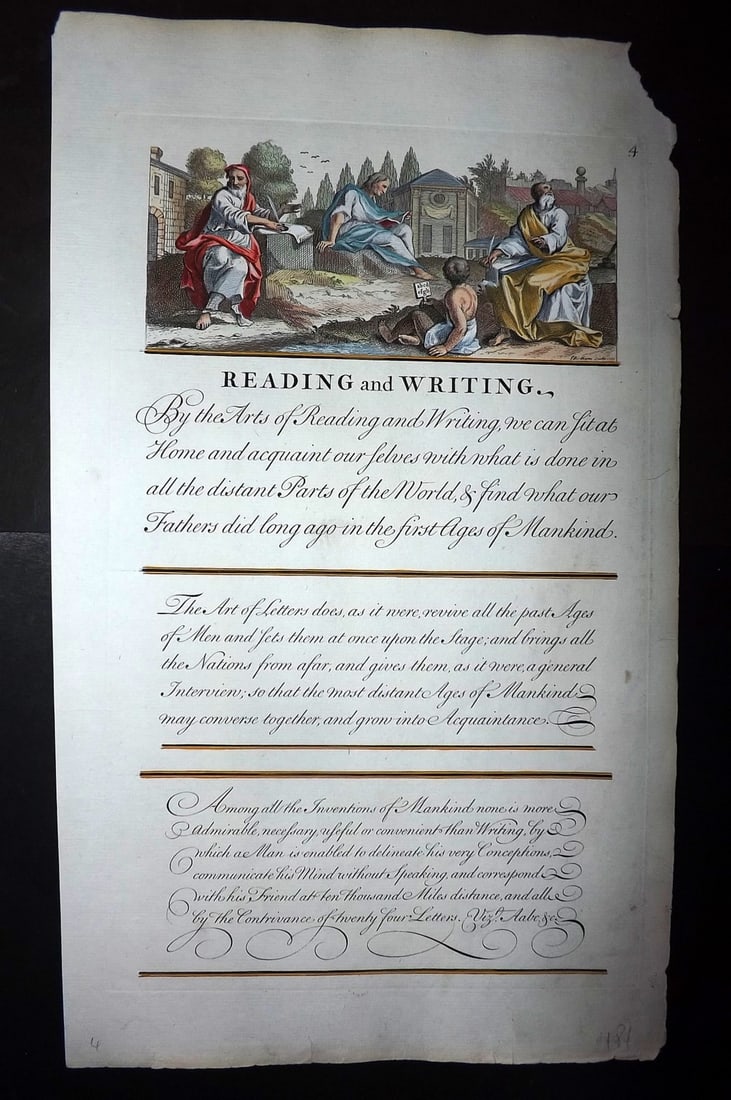 4
READING and WRITING.
By the Arts of Reading and Writing, we can ſit at
Home and acquaint our ſelves with what is done in
all the distant Parts of the World, & find what our
Fathers did long ago in the first Ages of Mankind.
The Art of Letters does, as it were, revive all the past Ages
of Men and ſets them at once upon the Stage; and brings all
the Nations from afar, and gives them, as it were, a general
Interview; so that the most distant Ages of Mankind
may converse together, and grow into Acquaintance.
Among all the Inventions of Mankind none is more
admirable, necessary, uſeful or convenient than Writing, by
which a Man is enabled to delineate his very Conceptions,
communicate his Mind without Speaking, and correspond
with his Friend at ten thousand Miles distance, and all
by the Contrivance of twenty four Letters. Vizt. Aabc, &c.
4 181